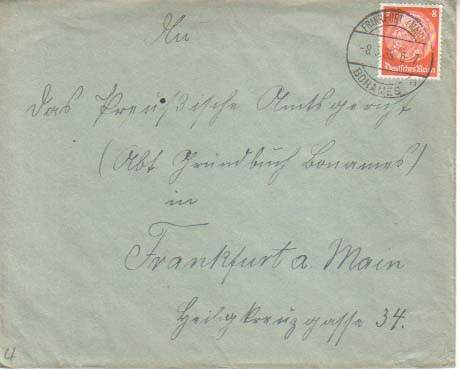 An
das Preußische Amtsgericht
(Abt Gründbuch Bonames)
in
Frankfurt a. Main
Heiligkreuzgasse 34.
8
Deutsches Reich
FRANKFURT (MAIN)
BONAMES
4